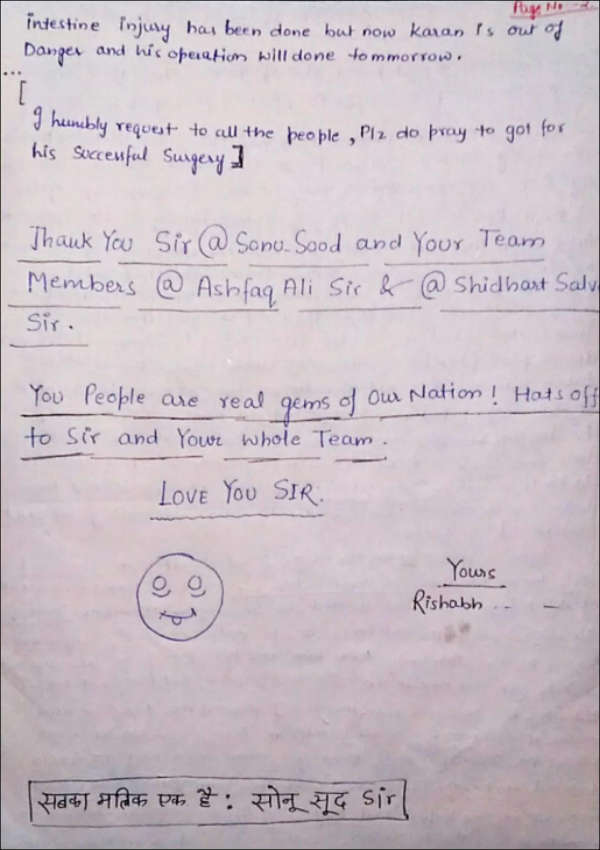 Page No - 2
intestine injury has been done but now Karan is out of
Danger and his operation will done tommorrow.
...
[
I humbly request to all the people, Plz do pray to got for
his Successful Surgery]
Thank You Sir @ Sonu-Sood and Your Team
Members @ Ashfaq Ali Sir & @ Shidhart Salv
Sir.
You People are real gems of Our Nation! Hats off
to Sir and Your whole Team.
LOVE YOU SIR.
Yours
Rishabh .. -
सबका मलिक एक है : सोनू सूद Sir